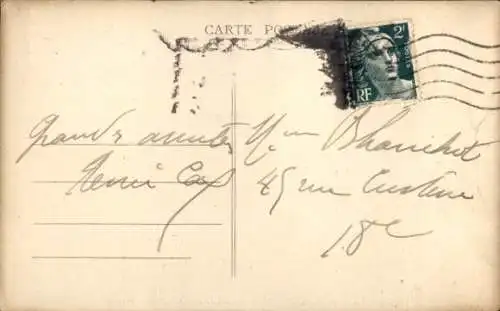 CARTE POSTALE
2F
RF
Grandes amitiés
Henri
Mme Blanchet
45 rue Custine
18e